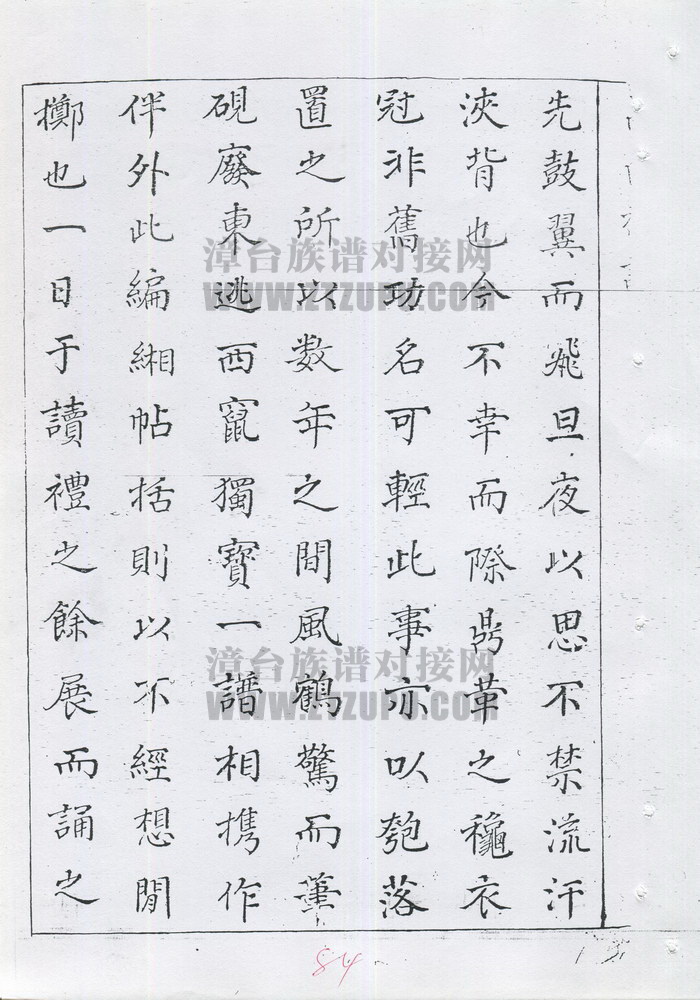 先鼓翼而飛旦夜以思不禁流汗
浹背也今不幸而際鼎革之龝衣
冠非舊功名可輕此事亦以匏落
置之所以数年之間風鶴驚而
硯廢東逃西竄獨寶一譜相携作
伴外此編緗帖括則以不經想閒
擲也一日于讀禮之餘展而誦之
漳台族谱对接网
WWW.ZTZUPU.COM
漳台族谱对接网
WWW.ZTZUPU.COM
84